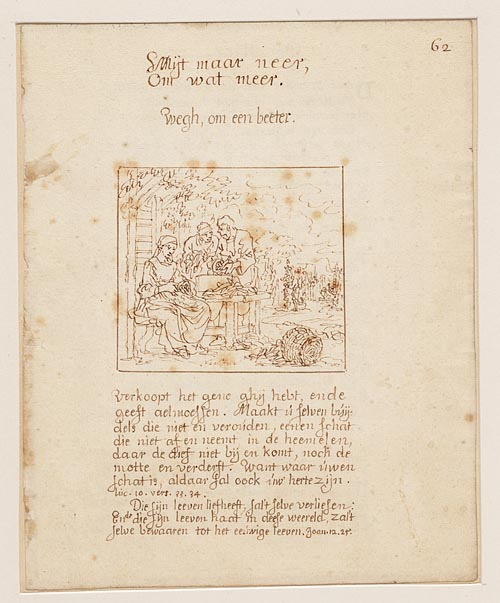 62
Smijt maar neer,
Om wat meer.
Wegh, om een beeter.
Verkoopt het gene ghij hebt, ende
geeft aelmoessen. Maakt ú selven búij-
dels die niet en verouden, eenen schat
die niet af en neemt in de heemelen,
daar de dief niet bij en komt, noch de
motte en verderft. Want waar úwen
schat is, aldaar sal oock úw herte zijn.
Lúc. 10. vers. 33. 34.
Die sijn leeven liefheeft, salt selve verliesen;
Ende die sijn leeven haat in deese weereld, zalt
selve bewaaren tot het eeuwige leeven. Joan. 12. 25.